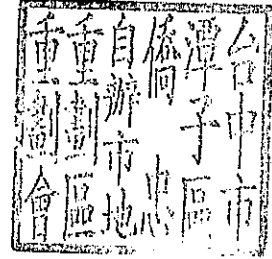 台中市
潭子區
僑忠
自辦市地
重劃區
重劃會